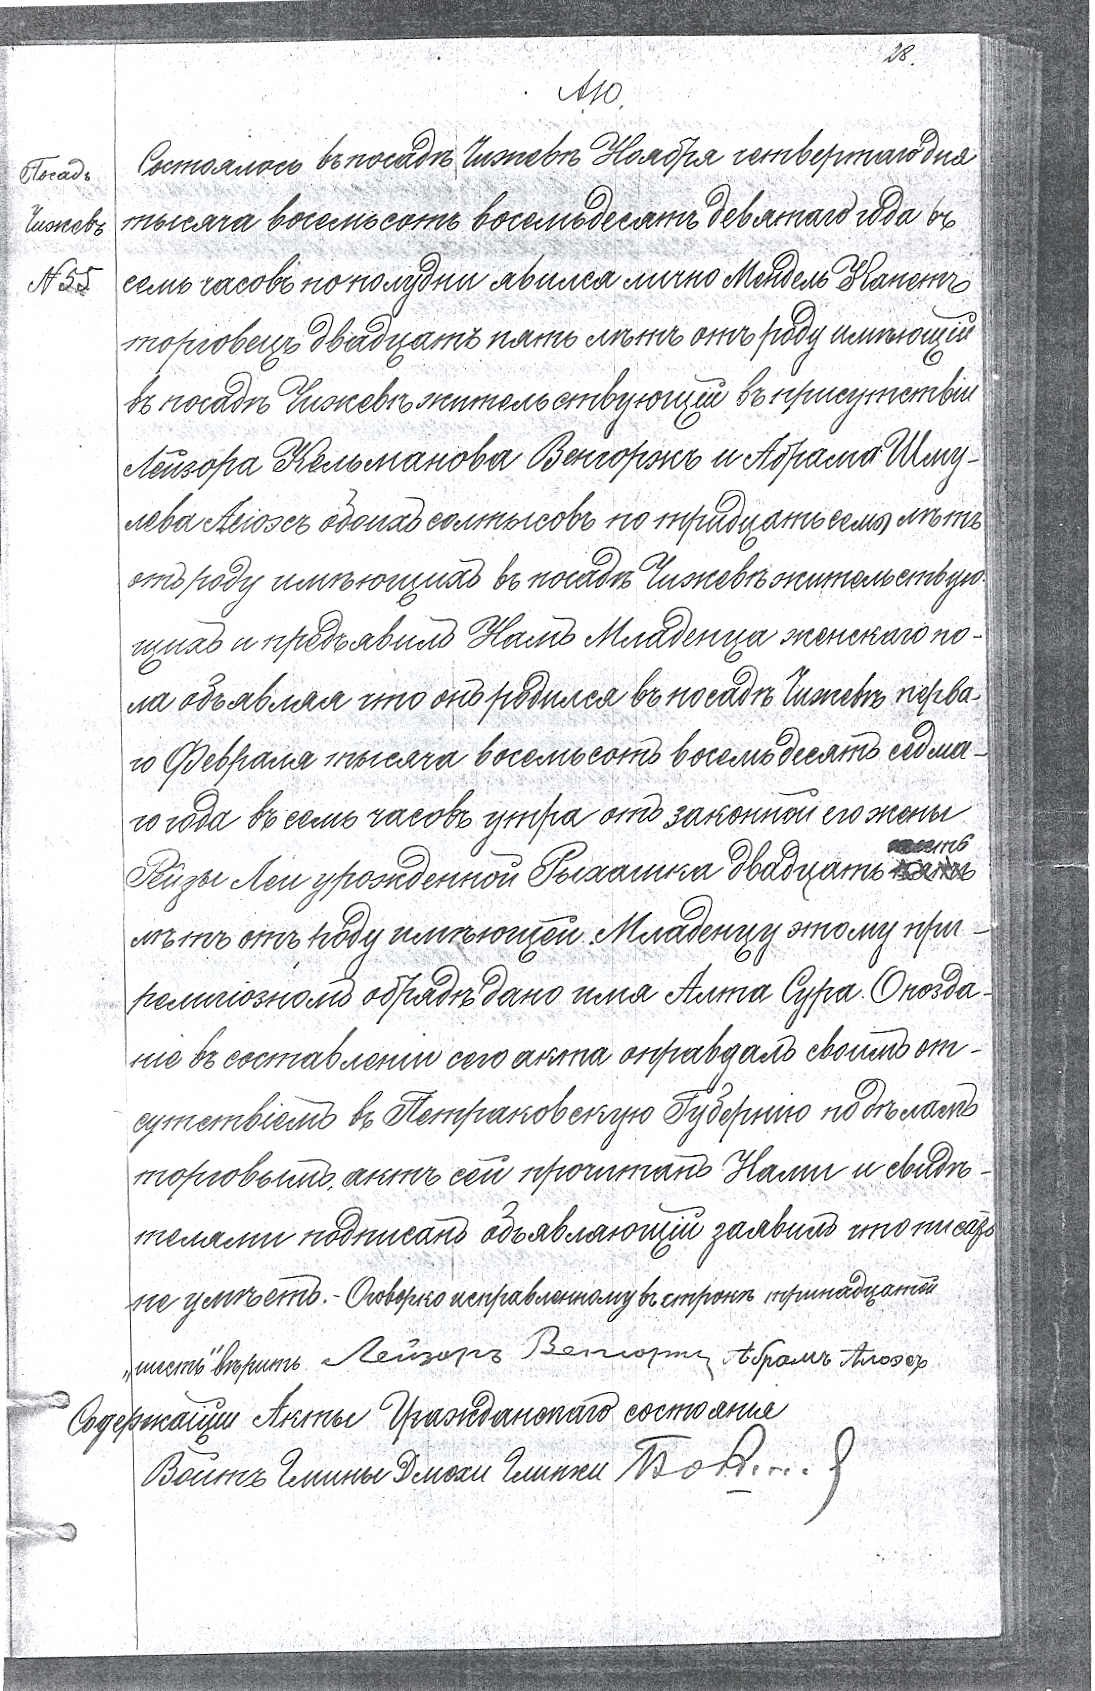 28.
А.Ю.
Посадъ
Чижевъ
№ 55
Состоялось въ посадѣ Чижевѣ Ноября четвертаго дня
тысяча восемьсотъ восемьдесятъ девятаго года въ
семь часовъ по полудни явился лично Мендель Капетъ
торговецъ двадцать пять лѣтъ отъ роду имѣющій
въ посадѣ Чижевѣ жительствующій въ присутствіи
Лейзора Кельманова Венгоржъ и Абрама Шму-
лева обоихъ солтысовъ по тридцать семь лѣтъ
отъ роду имѣющихъ въ посадѣ Чижевѣ жительствую-
щихъ и предъявилъ Намъ Младенца женскаго по-
ла объявляя что онъ родился въ посадѣ Чижевѣ перва-
го Февраля тысяча восемьсотъ восемьдесятъ седма-
го года въ семь часовъ утра отъ законной его жены
Рейзы Леи урожденной двадцать шесть
лѣтъ отъ роду имѣющей. Младенцу этому при
религіозномъ обрядѣ дано имя Алта Сура. Опозда-
ніе въ составленіи сего акта оправдалъ своимъ от-
сутствіемъ въ Петраковскую Губернію по дѣламъ
торговымъ, актъ сей прочитанъ Нами и свидѣ-
телями подписанъ объявляющій заявилъ что писать
не умѣетъ. - Оговорко исправленному въ строкѣ тринадцатой
„шесть" вѣрить Лейзоръ Венгоржъ Абрамъ
Содержащій Акты Гражданскаго состоянія
Войтъ Гмины Дмохи Глинки